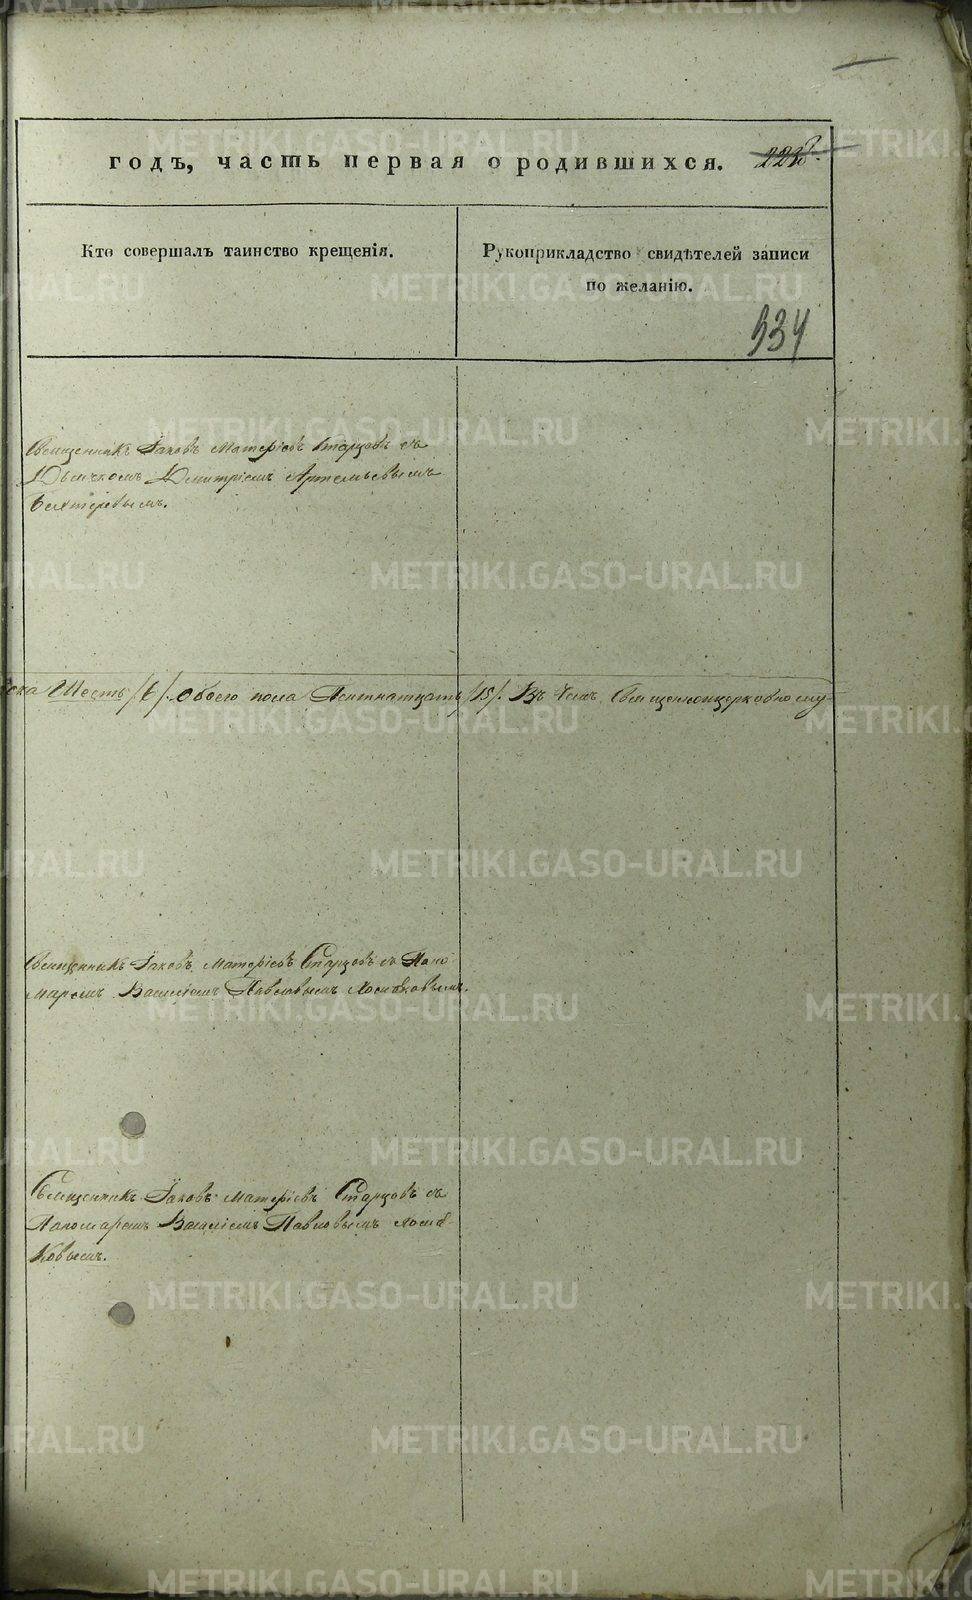 годъ, часть первая о родившихся.
Кто совершалъ таинство крещенія.
Рукоприкладство свидѣтелей записи
по желанію.
534
Священникъ Іаковъ Матѳіевъ Старцовъ съ
Дьячкомъ Димитріемъ Артемьевымъ
Бехтеревымъ.
Шесть /6/. Обоего пола Пятнатцать /15/. Въ чемъ Священноцерковнослу
Священникъ Іаковъ Матѳіевъ Старцовъ съ Поно
маремъ Василіемъ Павловымъ
Священникъ Іаковъ Матѳіевъ Старцовъ съ
Пономаремъ Василіемъ Павловымъ
ковымъ.
METRIKI.GASO-URAL.RU